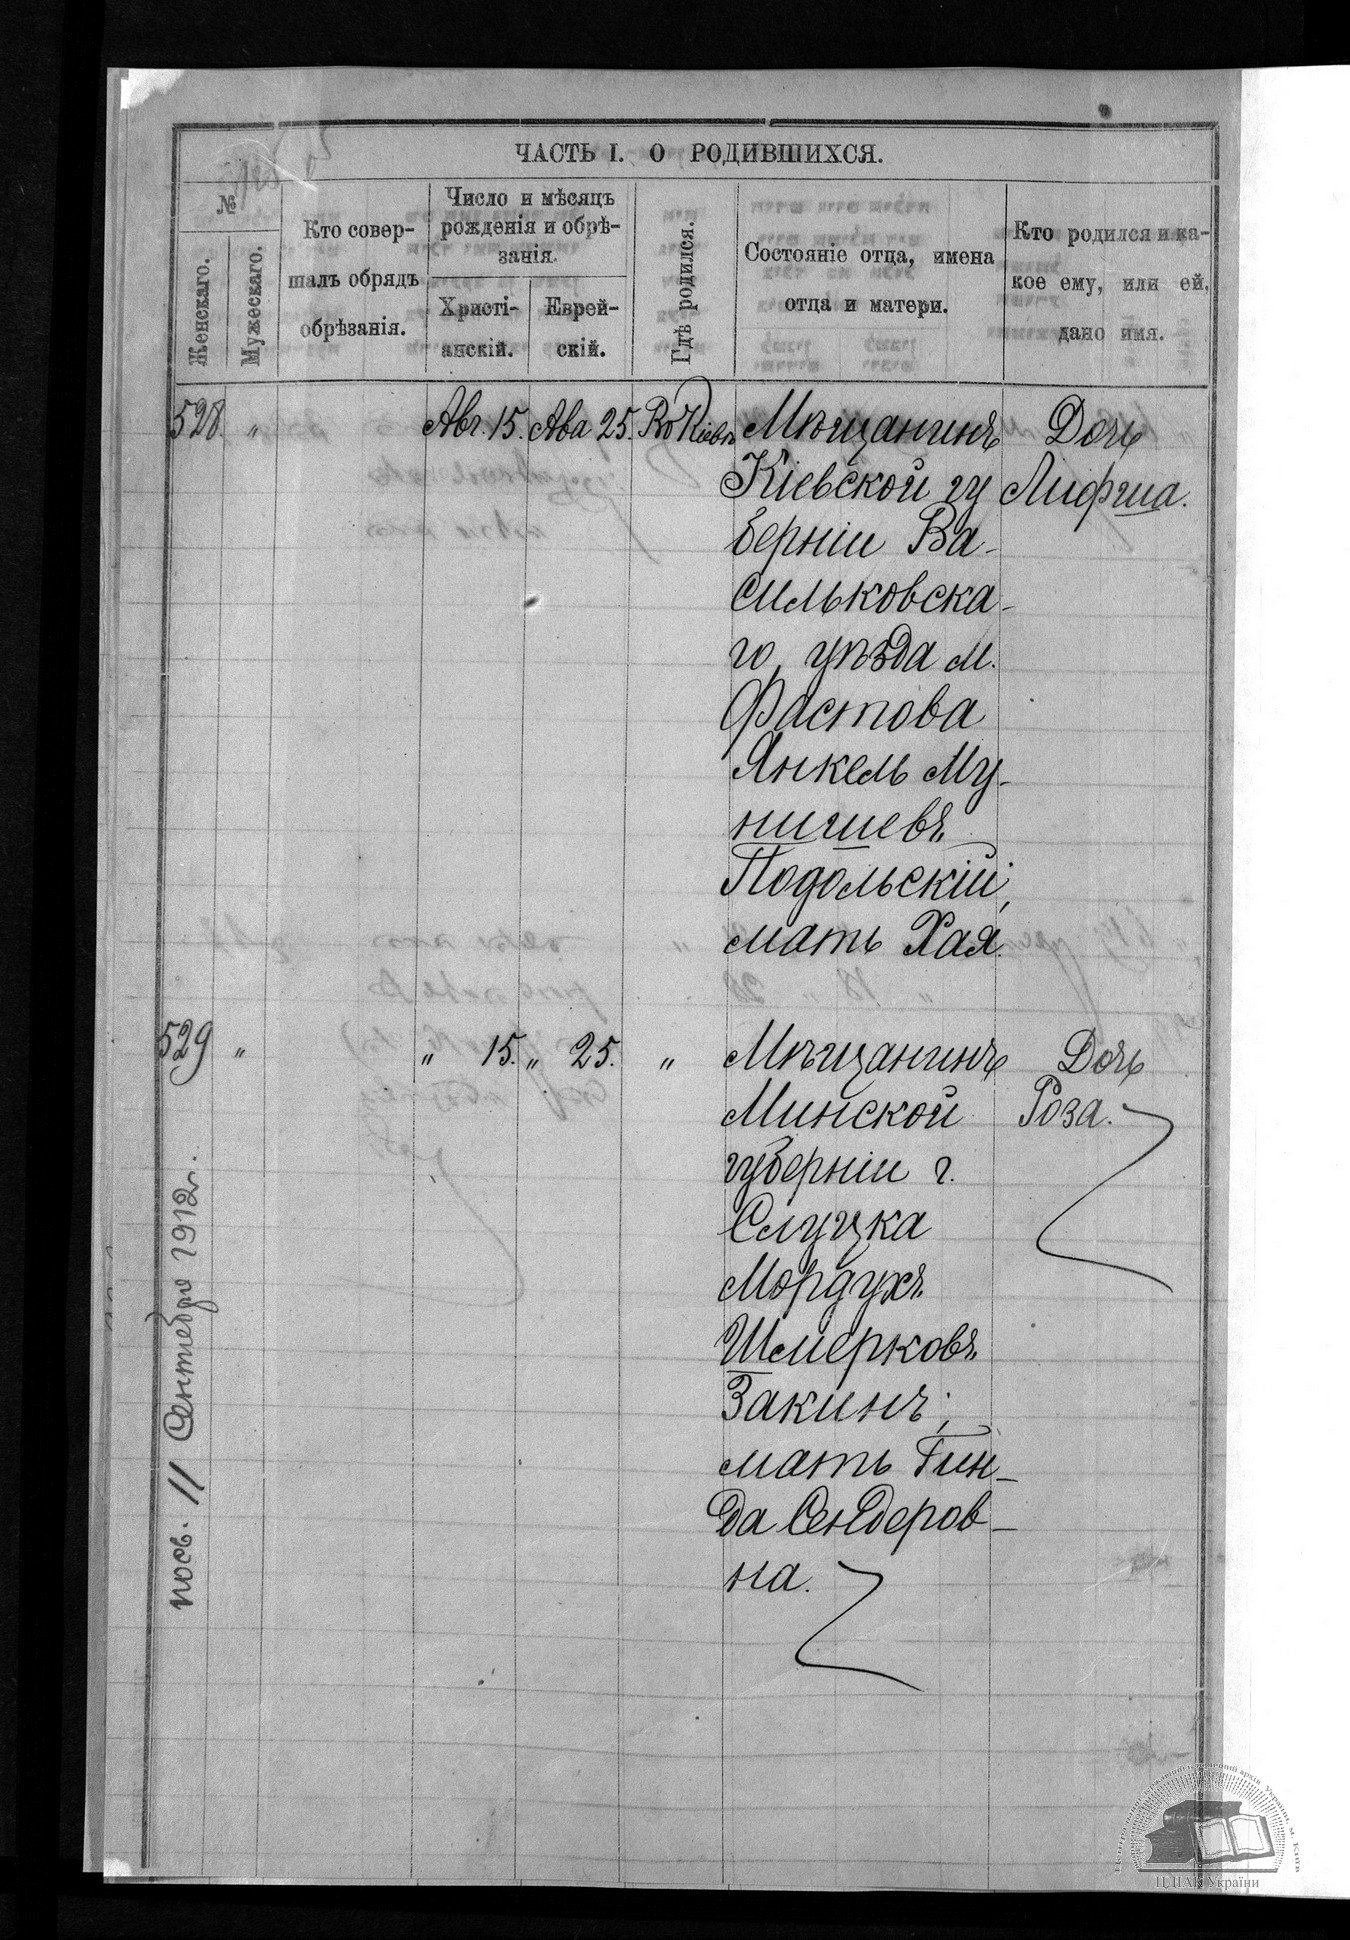 ЧАСТЬ I. О РОДИВШИХСЯ.
№
Женскаго.
Мужескаго.
Кто совер-
шалъ обрядъ
обрѣзанія.
Число и мѣсяцъ
рожденія и обрѣ-
занія.
Христі-
анскій.
Еврей-
скій.
Гдѣ родился.
Состояніе отца, имена
отца и матери.
Кто родился и ка-
кое ему, или ей,
дано имя.
528 " Авг. 15. Ава 25. Въ Кіевѣ Мѣщанинъ Дочь
Кіевской гу Лифша.
берніи Ва-
сильковска-
го уѣзда м.
Фастова
Янкель Му-
нишевъ
Подольскій;
мать Хая.
529 " " 15. " 25. " Мѣщанинъ Дочь
Минской Роза.
губерніи г.
Слуцка
Мордухъ
Шмерковъ
Закинъ;
мать Гин-
да Сендеров-
на.
11 Сентября 1912 г.
ЦДІАК України